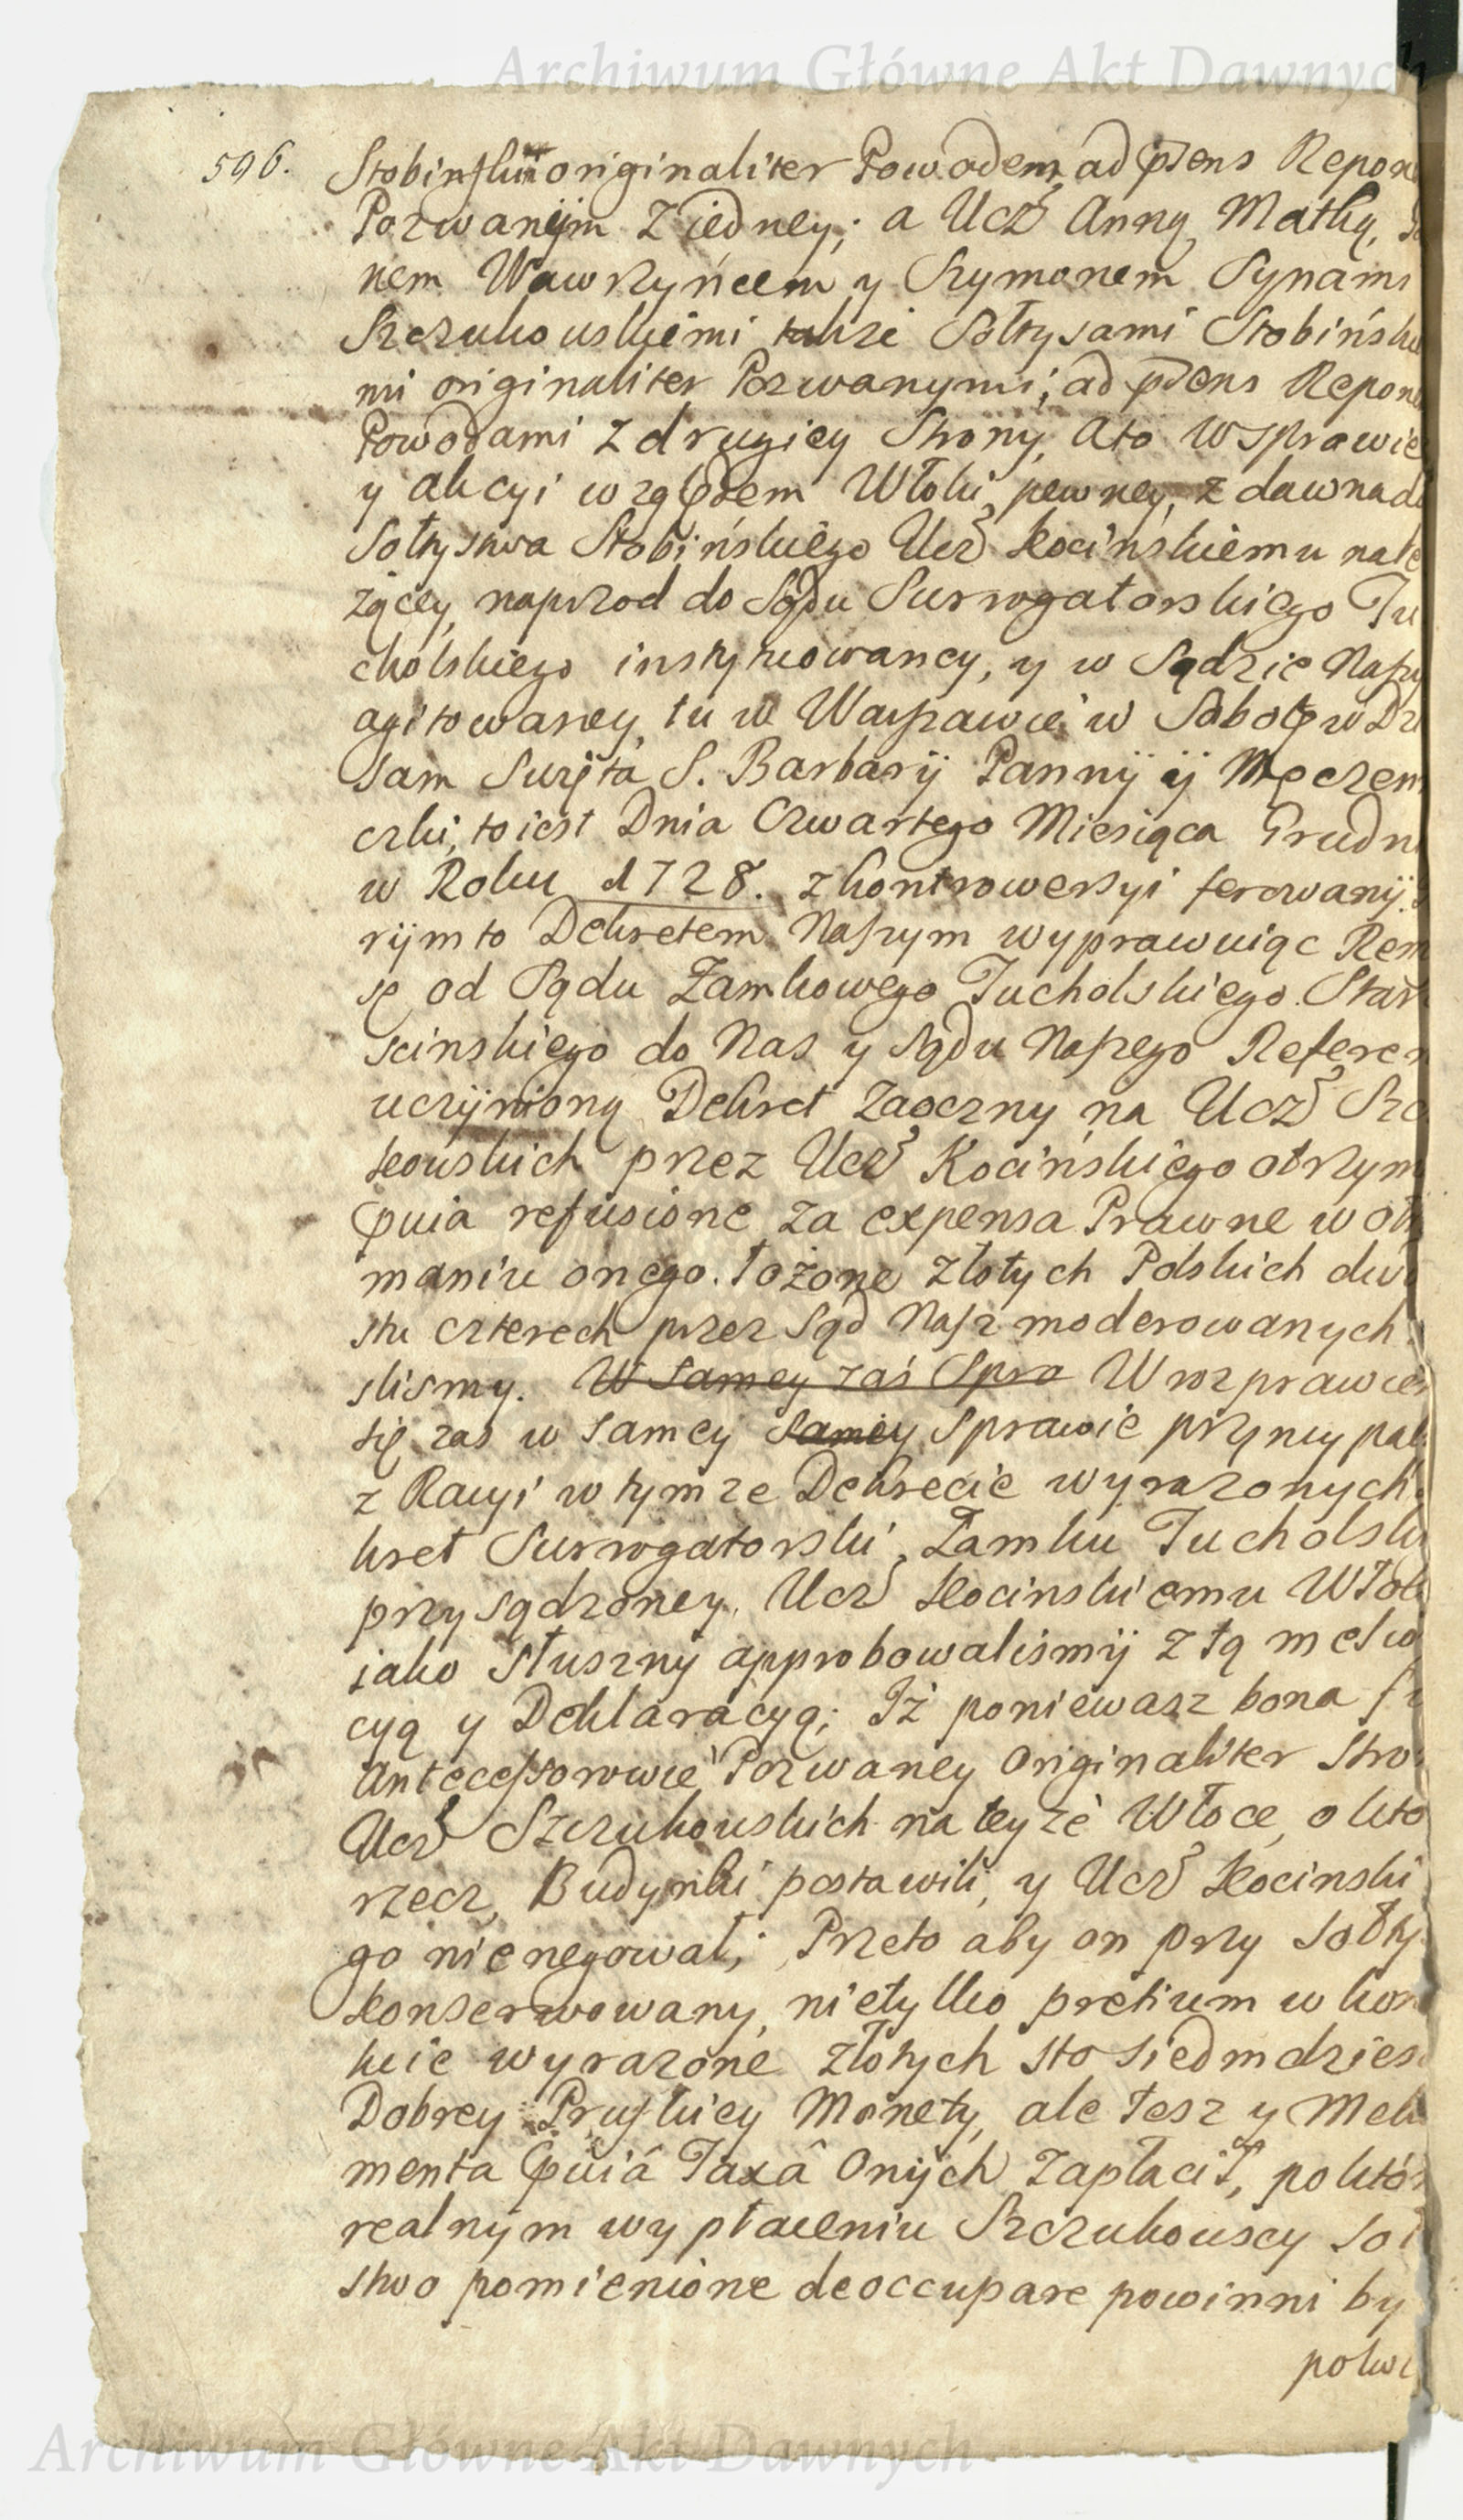 Archiwum Główne Akt Dawnych
596.
Stobinskim originaliter Powodem, ad prens Repon
Pozwanÿm z iedney; a Ucz Anną Matką,
nem Wawrzyńcem y Szymonem Synami
Szczukouskiemi takze Sołtysami Stobińskie
mi originaliter Pozwanymi; ad prens Repon
Powodami z drugiey Strony, Ato w sprawie
y akcyi względem Włoki pewney, z dawna do
Sołtystwa Stobińskiego Ucz Kocińskiemu nale
żącey, naprzod do Sądu Surrogatorskiego Tu
cholskiego instytuowaney, y w Sądzie Naszy
agitowaney, tu w Warszawie w Sobotę w Dz
sam Swięta S. Barbarÿ Pannÿ ÿ Męczen
czki, to iest Dnia Czwartego Miesiąca Grudn
w Roku 1728. z kontrowersyi ferowanÿ
rÿm to Dekretem Naszym wyprawuiąc Rem
sę od Sądu Zamkowego Tucholskiego Star
scinskiego do Nas y Sądu Naszego Referen
uczÿnioną Dekret Zaoczny na Ucz Szc
kouskich przez Ucz Kocińskiego otrzym
quia refusione za expensa Prawne w otr
maniu onego łożone Złotych Polskich dwu
stu czterech przez Sąd Nasz moderowanych
slismy. W samey zaś Spra W rozprawie
się zas w samey samey Sprawie pryncypal
z Racyi w tymze Dekrecie wyrazonych
kret Surrogatorski, Zamku Tucholsk
przysądzoney Ucz Kocinskiemu Włok
jako słuszny approbowaliśmÿ z tą
cyą y Deklaracyą; Iż poniewasz bona fi
Antecessorowie Pozwaney Originaliter Stro
Ucz Szczukouskich na teyże Włoce, o kto
rzecz, Budynki postawili, y Ucz Kocinski
go nienegował; Przeto aby on przy Sołty
konserwowany, nietylko pretium w kon
kcie wyrazone Złotych sto siedmdzies
Dobrey Pruskiey Monety, ale tesz y Melio
menta quiâ Taxâ Onÿch Zapłacił, po któr
realnÿm wypłaceniu Szczukouscy Soł
stwo pomienione deoccupare powinni by
Archiwum Główne Akt Dawnych